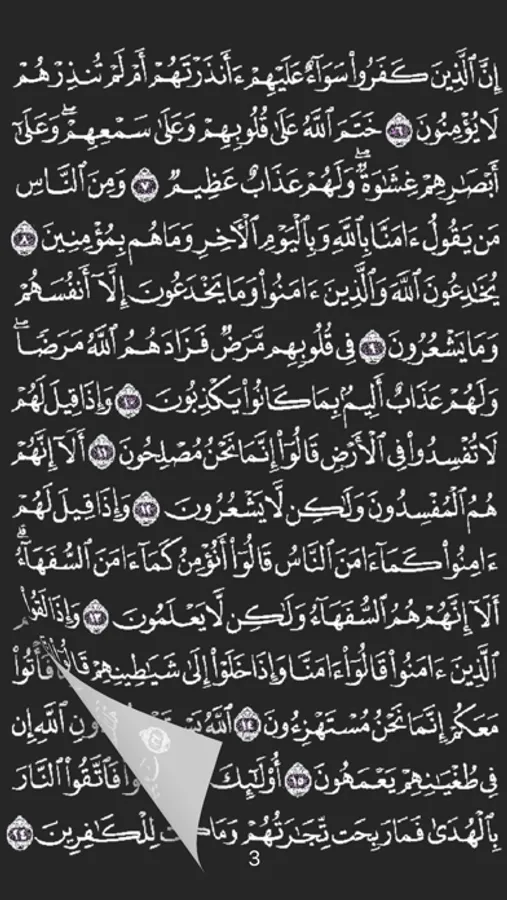 إِنَّ ٱلَّذِينَ كَفَرُوا۟ سَوَآءٌ عَلَيْهِمْ ءَأَنذَرْتَهُمْ أَمْ لَمْ تُنذِرْهُمْ
لَا يُؤْمِنُونَ ٦ خَتَمَ ٱللَّهُ عَلَىٰ قُلُوبِهِمْ وَعَلَىٰ سَمْعِهِمْ ۖ وَعَلَىٰٓ
أَبْصَـٰرِهِمْ غِشَـٰوَةٌ ۖ وَلَهُمْ عَذَابٌ عَظِيمٌ ٧ وَمِنَ ٱلنَّاسِ
مَن يَقُولُ ءَامَنَّا بِٱللَّهِ وَبِٱلْيَوْمِ ٱلْـَٔاخِرِ وَمَا هُم بِمُؤْمِنِينَ ٨
يُخَـٰدِعُونَ ٱللَّهَ وَٱلَّذِينَ ءَامَنُوا۟ وَمَا يَخْدَعُونَ إِلَّآ أَنفُسَهُمْ
وَمَا يَشْعُرُونَ ٩ فِى قُلُوبِهِم مَّرَضٌ فَزَادَهُمُ ٱللَّهُ مَرَضًا ۖ
وَلَهُمْ عَذَابٌ أَلِيمٌۢ بِمَا كَانُوا۟ يَكْذِبُونَ ١٠ وَإِذَا قِيلَ لَهُمْ
لَا تُفْسِدُوا۟ فِى ٱلْأَرْضِ قَالُوٓا۟ إِنَّمَا نَحْنُ مُصْلِحُونَ ١١ أَلَآ إِنَّهُمْ
هُمُ ٱلْمُفْسِدُونَ وَلَـٰكِن لَّا يَشْعُرُونَ ١٢ وَإِذَا قِيلَ لَهُمْ
ءَامِنُوا۟ كَمَآ ءَامَنَ ٱلنَّاسُ قَالُوٓا۟ أَنُؤْمِنُ كَمَآ ءَامَنَ ٱلسُّفَهَآءُ ۗ
أَلَآ إِنَّهُمْ هُمُ ٱلسُّفَهَآءُ وَلَـٰكِن لَّا يَعْلَمُونَ ١٣ وَإِذَا لَقُوا۟
ٱلَّذِينَ ءَامَنُوا۟ قَالُوٓا۟ ءَامَنَّا وَإِذَا خَلَوْا۟ إِلَىٰ شَيَـٰطِينِهِمْ فَأْتُوا۟
مَعَكُمْ إِنَّمَا نَحْنُ مُسْتَهْزِءُونَ ١٤ ٱللَّهُ ٱللَّهِ إِن
فِى طُغْيَـٰنِهِمْ يَعْمَهُونَ ١٥ أُو۟لَـٰٓئِكَ فَٱتَّقُوا۟ ٱلنَّارَ
بِٱلْهُدَىٰ فَمَا رَبِحَت تِّجَـٰرَتُهُمْ وَمَا لِلْكَـٰفِرِينَ ٢٤
3